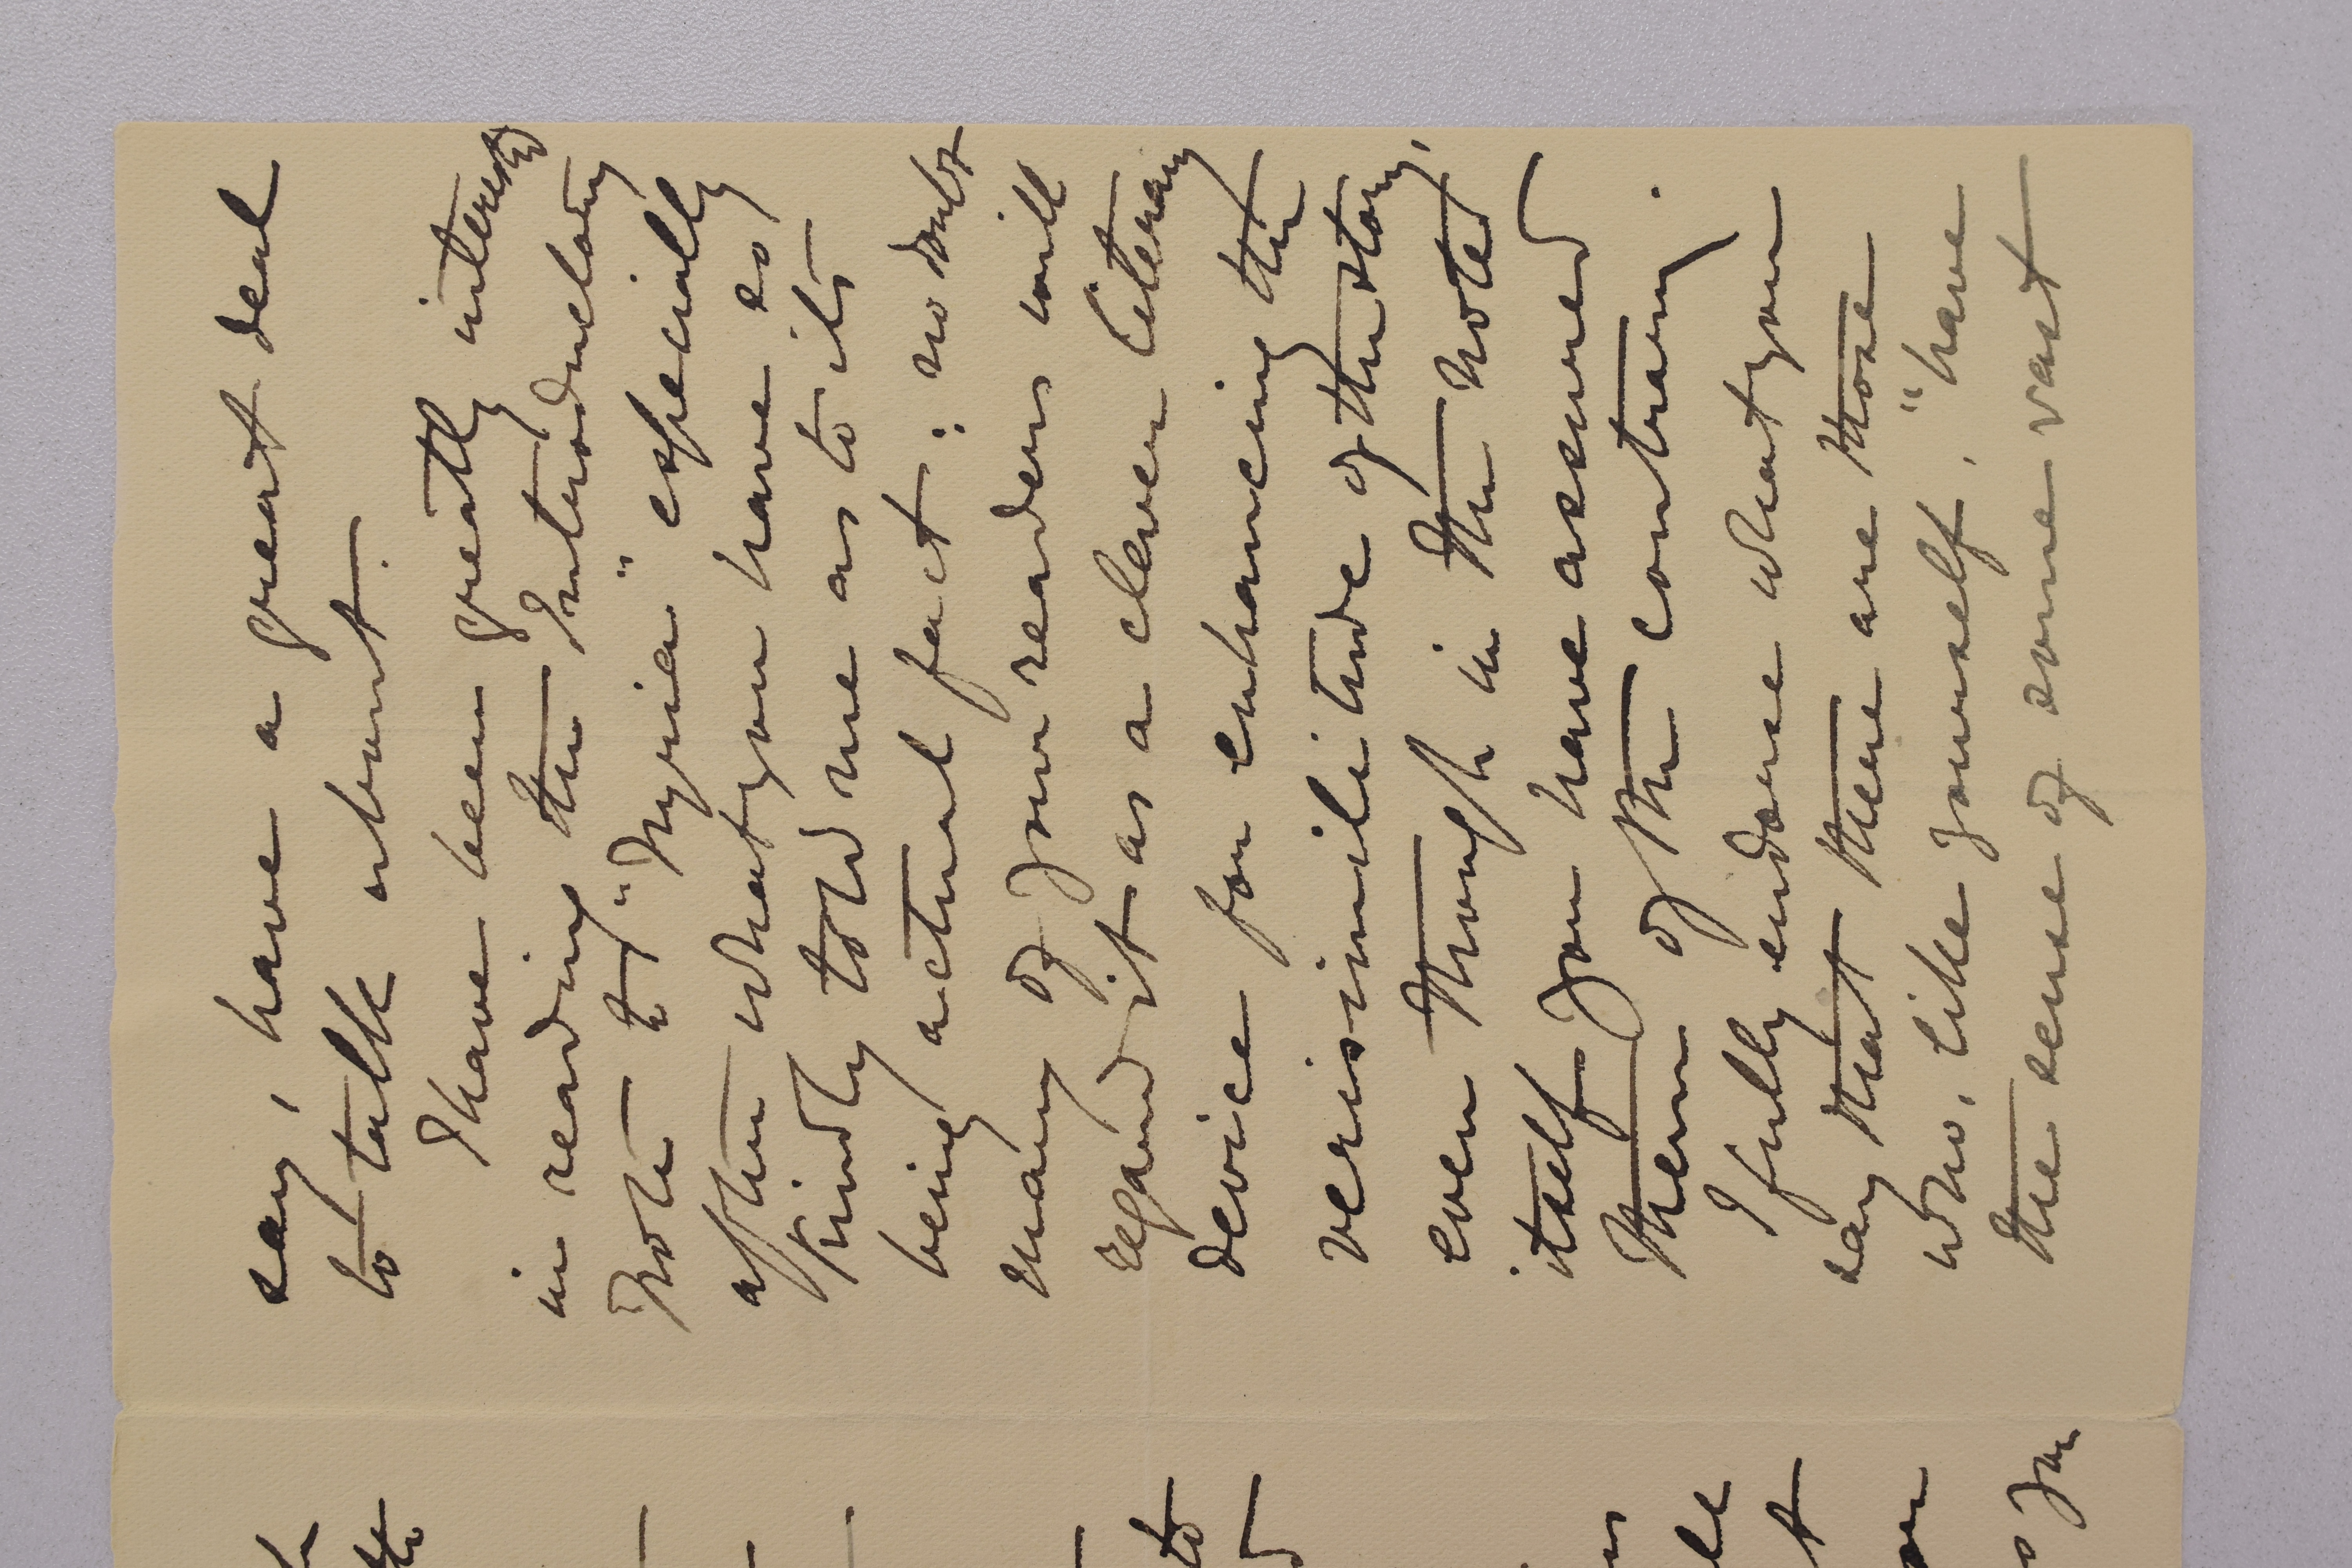 say, have a great deal
to talk about.
I have been greatly interested
in reading the Introductory
Note to "Nyria" especially
after what you have so
kindly told me as to its
being actual fact: no doubt
many of your readers will
regard it as a clever literary
device for enhancing the
verisimilitude of the story,
even though in the noted
itself you have assured
them of the contrary.
I fully endorse what you
say that there are those
who, like yourself, "have
the sense of some vast
to
you